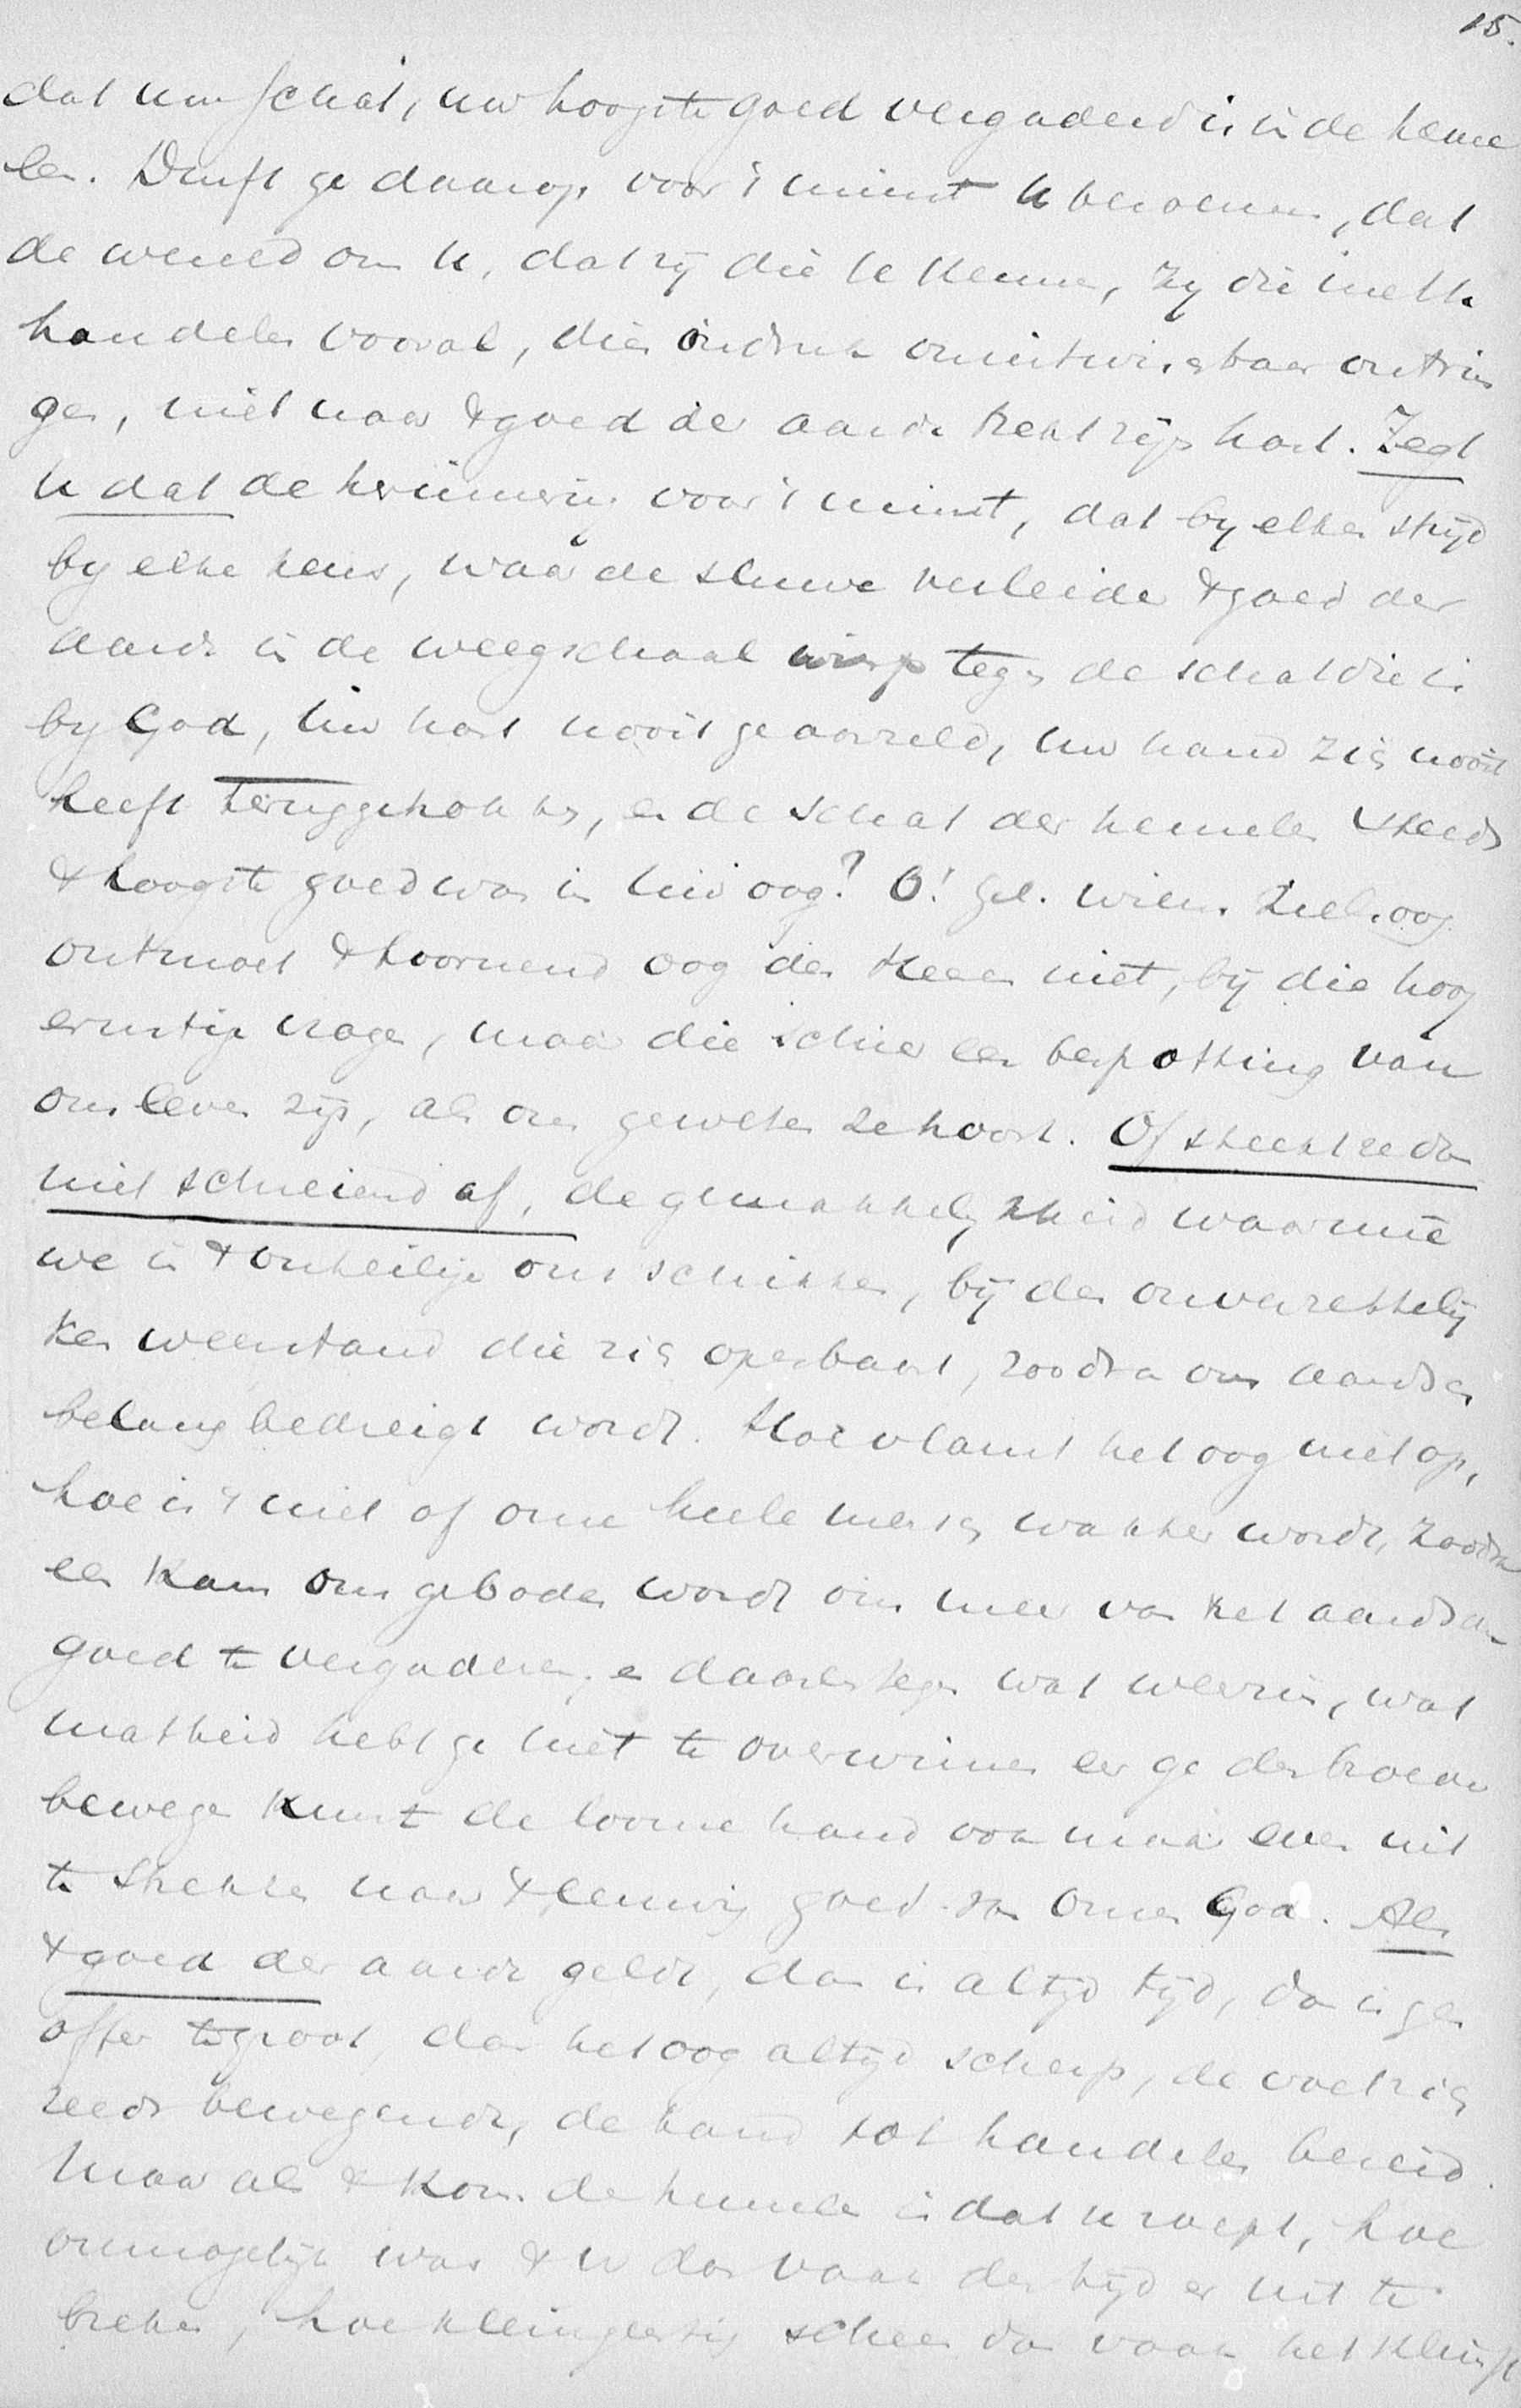 15.
dat uw schat, uw hoogste goed vergaderd is in de heme
len. Durft ge daarop voor 't minst u beroemen, dat
de wereld om u, dat zij die u kennen, zy die met u
handelen vooral, dien indruk onuitwischbaar ontvin
gen, niet naar 't goed der aarde trekt zijn hart. Zegt
u dat de herinnering voor 't minst, dat by elken strijd
by elke keus, waar de sluwe verleider 't goed der
aarde in de weegschaal wierp tegen de schat die is
by God, Uw hart nooit geaarzeld, Uw hand zich nooit
heeft teruggetrokken, en de schat der hemelen steeds
't hoogste goed was in Uw oog? O! Gel. wiens zielsoog
ontmoet 't toornend oog des Heeren niet, bij die hoog
ernstige vragen, maar die schier een bespotting van
ons leven zijn, als ons geweten ze hoort. Of steekt ze dan
niet schreiend af, de gemakkelijkheid waarmeê
we in 't onheilige ons schikken, bij den onverzettelij
ken weerstand die zich openbaart, zoodra ons aardsch
belang bedreigt wordt. Hoe vlamt het oog niet op,
hoe is 't niet of onze heele mensch wakker wordt, zoodra
een kans ons geboden wordt om meer van het aardsche
goed te vergaderen, en daarentegen wat weerzin, wat
matheid hebt ge niet te overwinnen eer ge den broeder
bewegen kunt de loome hand ook maar even uit
te strekken naar 't eeuwig goed van onzen God. Als
't goed der aarde geldt, dan is altijd tijd, dan is geen
offer te groot, dan het oog altijd scherp, de voet zich
reeds bewegende, de hand tot handelen bereid.
Maar als 't Kon. de hemelen is dat u roept, hoe
onmogelijk was 't U dan vaak den tijd er uit te
breken, hoe kleingeestig scheen dan vaak het